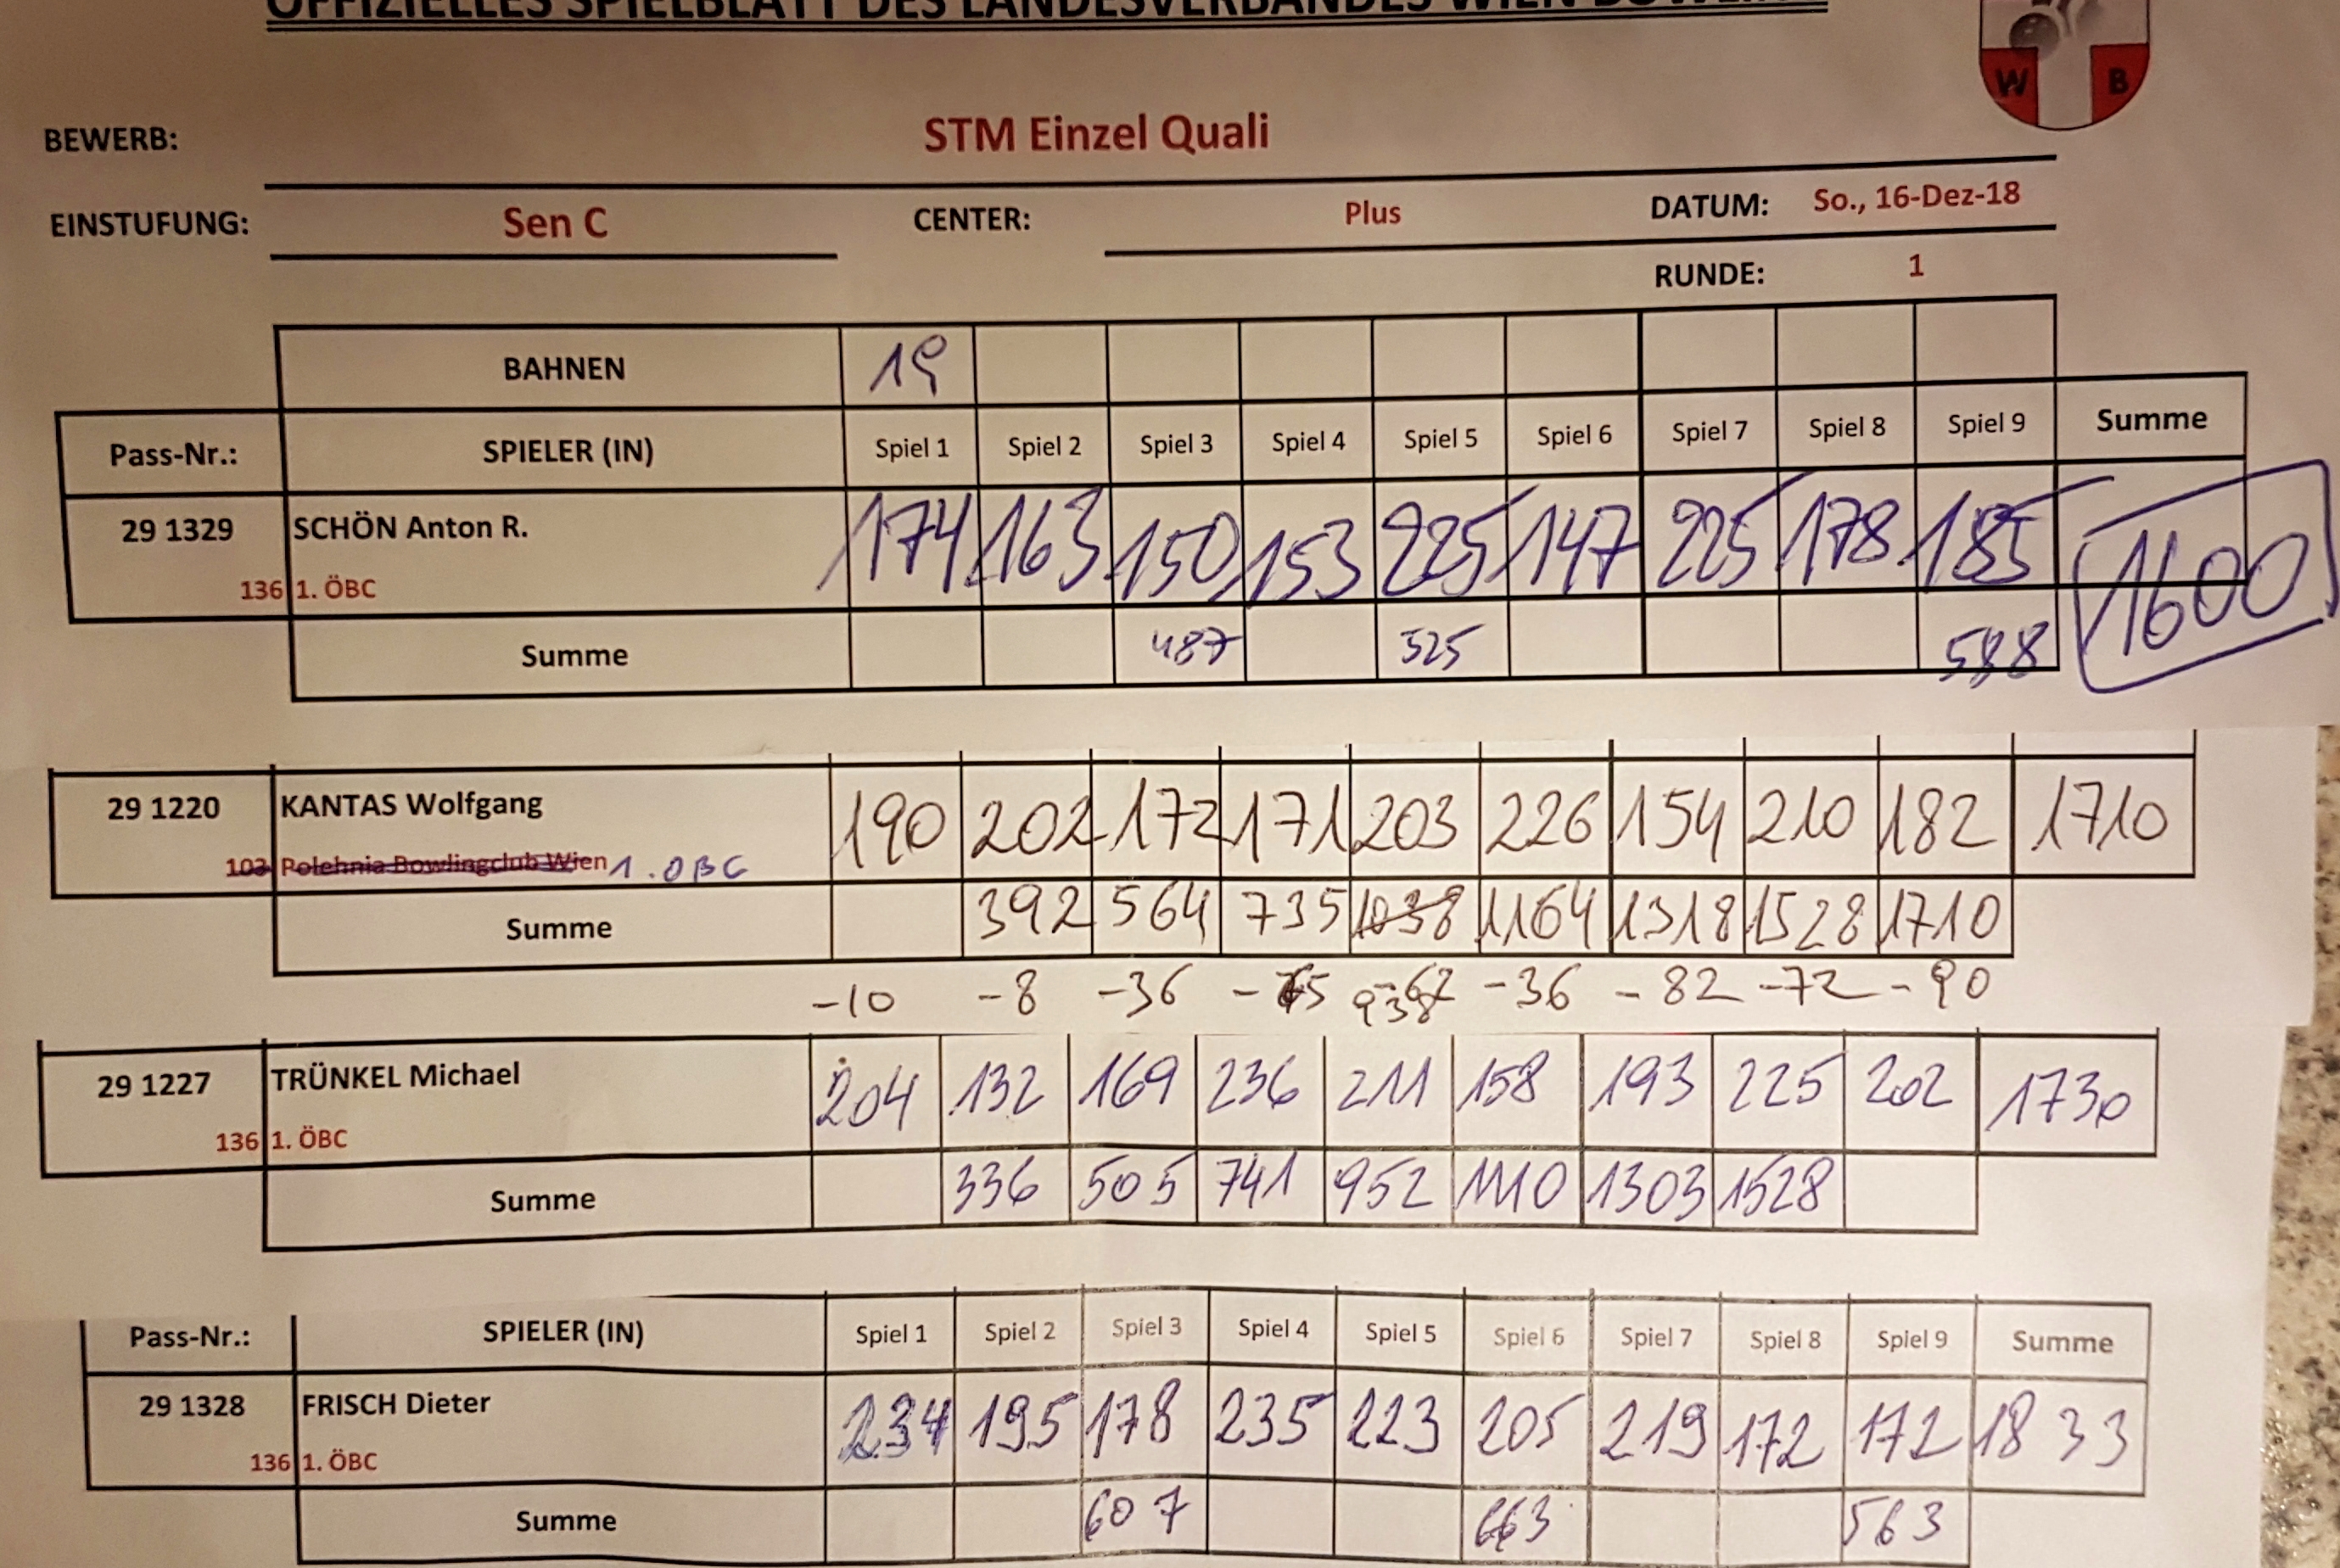 OFFIZIELLES SPIELBLATT DES LANDESVERBANDES WIEN
W B
BEWERB: STM Einzel Quali
EINSTUFUNG: Sen C CENTER: Plus DATUM: So., 16-Dez-18
RUNDE: 1
BAHNEN 19
Pass-Nr.: SPIELER (IN) Spiel 1 Spiel 2 Spiel 3 Spiel 4 Spiel 5 Spiel 6 Spiel 7 Spiel 8 Spiel 9 Summe
29 1329 SCHÖN Anton R. 174 163 150 153 225 147 225 178 185 1600
136 1. ÖBC
Summe 487 525 588
29 1220 KANTAS Wolfgang 190 202 172 171 203 226 154 210 182 1710
103 Polehnia Bowlingclub Wien 1. ÖBC
Summe 392 564 735 1038 1164 1318 1528 1710
-10 -8 -36 -65 -62 -36 -82 -72 -90
938
29 1227 TRÜNKEL Michael 204 132 169 236 211 158 193 225 202 1730
136 1. ÖBC
Summe 336 505 741 952 1110 1303 1528
Pass-Nr.: SPIELER (IN) Spiel 1 Spiel 2 Spiel 3 Spiel 4 Spiel 5 Spiel 6 Spiel 7 Spiel 8 Spiel 9 Summe
29 1328 FRISCH Dieter 234 195 178 235 223 205 219 172 172 1833
136 1. ÖBC
Summe 607 663 563